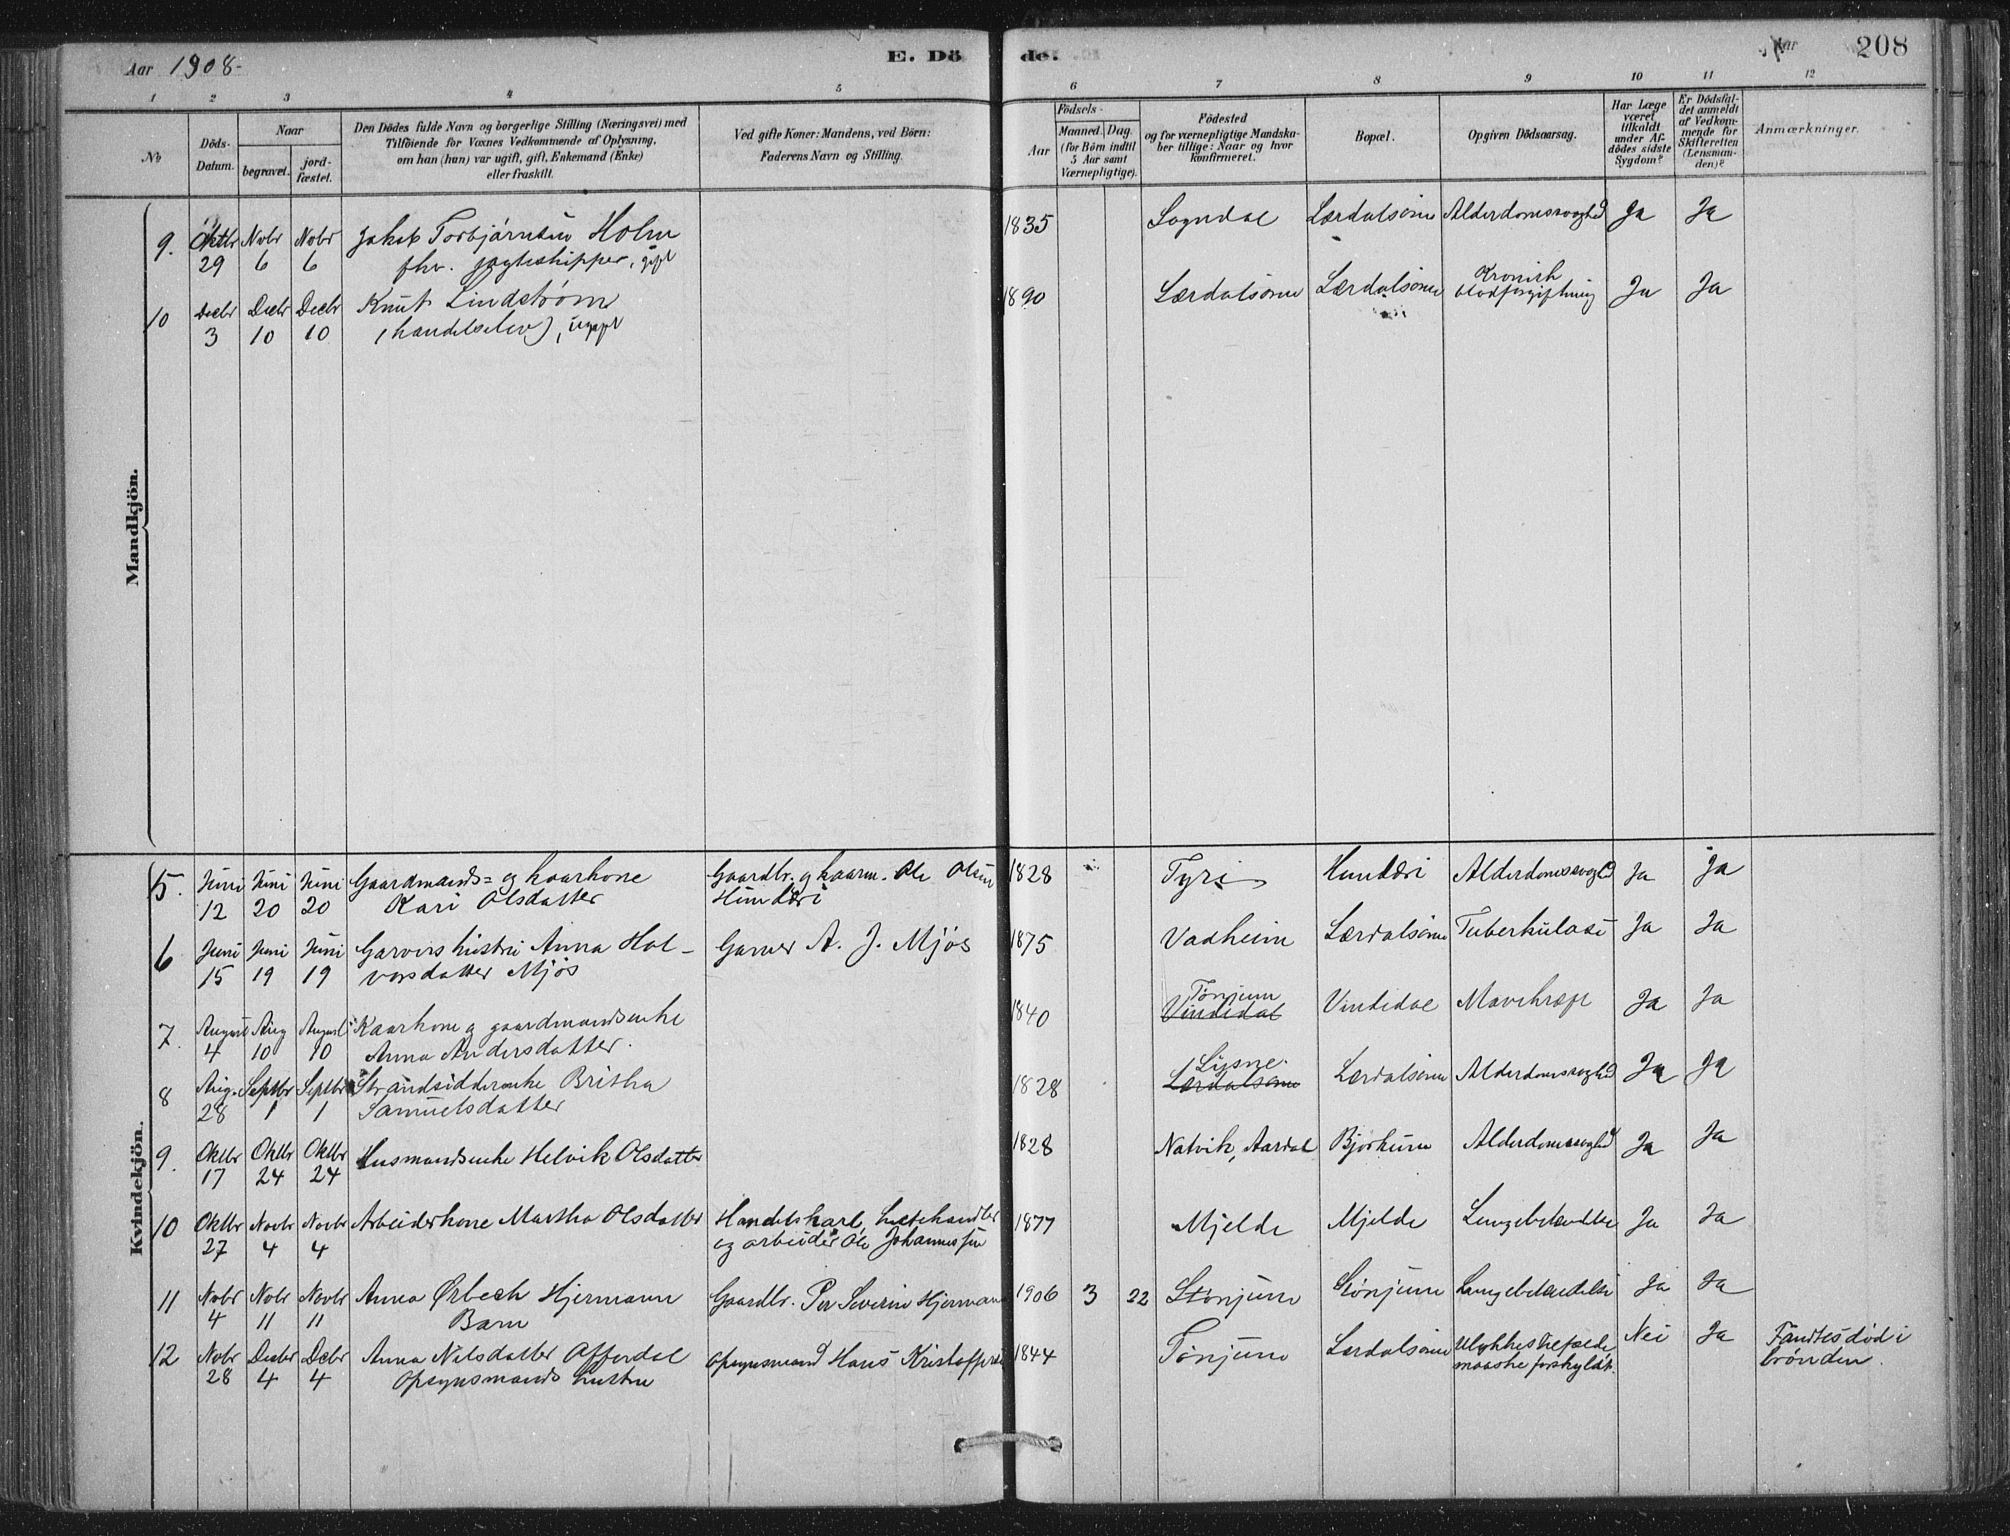 Aar 1908.
E. Döde.
Aar
208
1 2 3 4 5 6 7 8 9 10 11 12
No
Döds-Datum.
Naar
begravet.
jordfæstet.
Den Dödes fulde Navn og borgerlige Stilling (Næringsvei) med
Tilföiende for Voxnes Vedkommende af Oplysning,
om han (hun) var ugift, gift, Enkemand (Enke)
eller fraskilt.
Ved gifte Koner: Mandens, ved Börn:
Faderens Navn og Stilling.
Födsels-
Aar
Maaned. Dag.
(for Börn indtil
5 Aar samt
Værnepligtige).
Födested
og for værnepligtige Mandskaber tillige: Naar og hvor
konfirmeret.
Bopæl.
Opgiven Dödsaarsag.
Har Læge
været
tilkaldt
under Afdödes sidste
Sygdom?
Er Dödsfaldet anmeldt
af Vedkommende for
Skifteretten
(Lensmanden)?
Anmærkninger.
Mandkjön.
9. Oktbr 29 Nobr 6 Nobr 6 Jakob Torbjørnsen Holm 1835 Sogndal Lærdalsøren Alderdomssvaghed Ja Ja
fhv. jagteskipper, gift
10 Decbr 3 Decbr 10 Decbr 10 Knut Lindstrøm 1890 Lærdalsøren Lærdalsøren Kronisk blodforgiftning Ja Ja
(handelselev), ugift
Kvindekjön.
5. Juni 12 Juni 20 Juni 20 Gaardmands= og kaarkone Gaardbr. og kaarm. Ole Olsen 1828 Tyri Hunderi Alderdomssvaghed Ja Ja
Kari Olsdatter Hunderi
6 Juni 15 Juni 19 Juni 19 Garvers hustru Anna Hal- Garver A. J. Mjøs 1875 Vadheim Lærdalsøren Tuberkulose Ja Ja
vorsdatter Mjøs
7. August 4 Aug 10 August 10 Kaarkone og gaardmandsenke 1840 Tønjum Vindedal Vindedal Mavekræft Ja Ja
Anna Andersdatter.
8 Aug. 28 Septbr 1 Septbr 1 Strandsidderenke Britha 1828 Lysne. Lærdalsøren Lærdalsøren Alderdomssvaghed Ja Ja
Samuelsdatter
9. Oktbr 17 Oktbr 24 Oktbr 24 Husmandsenke Helvik Olsdatter 1828 Natvik, Aardal Bjørkum Alderdomssvaghed Ja Ja
10 Oktbr 27 Novbr 4 Novbr 4 Arbeiderkone Martha Olsdatter Handelskarl, hestehandler 1877 Mjelde Mjelde Lungebetændelse Ja Ja
og arbeider Ole Johannessen
11 Nobr 4 Nobr 11 Novbr 11 Anna Ørbech Hjermann Gaardbr. Per Severin Hjermann 1906 3 22 Stønjum Stønjum Lungebetændelse Ja Ja
Barn
12 Nobr 28 Decbr 4 Decbr 4 Anna Nilsdatter Offerdal Opsynsmand Hans Kristoffersen 1844 Tønjum Lærdalsøren Ulykkestilfælde, Nei Ja Fandtes død i
Opsynsmands hustru maaske forskyldt. brønden.